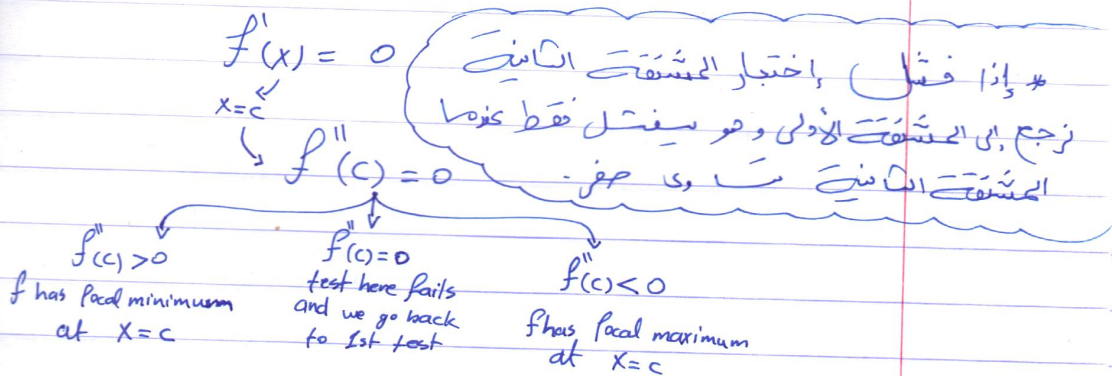 f'(x) = 0
x=c
f''(c) = 0
* إذا فشل إختبار المشتقة الثانية
نرجع إلى المشتقة الأولى وهو سيفشل فقط عندما
المشتقة الثانية تساوى صفر.
f''(c) >0
f has local minimum
at x=c
f''(c)=0
test here fails
and we go back
to 1st test
f''(c)<0
f has local maximum
at x=c